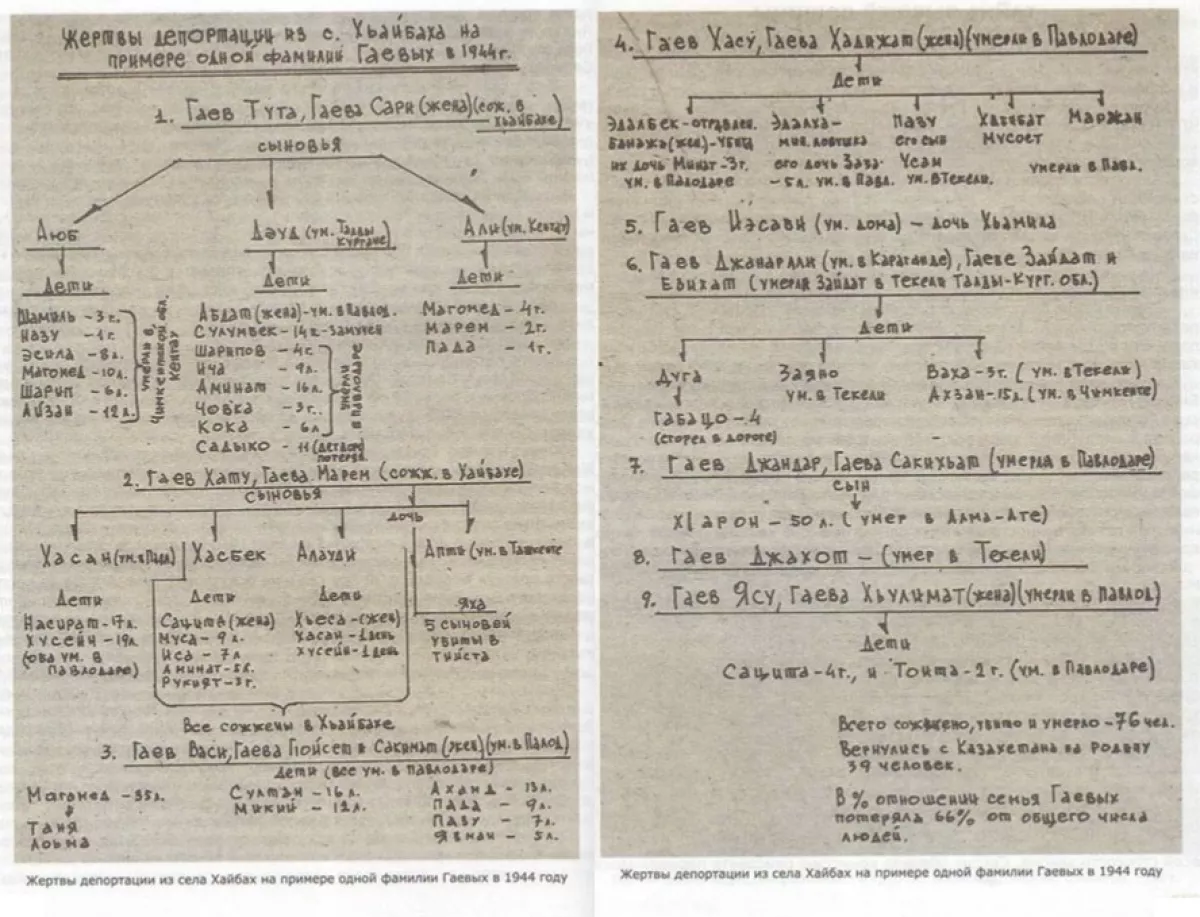 Жертвы депортации из с. Хьайбаха на
примере одной фамилий Гаевых в 1944г.
1. Гаев Тута, Гаева Сари (жена) (сож. в
Хьайбахе)
сыновья
Аюб
Дауд (ум. Талды
Кургане)
Али (ум. Кентау)
Дети
Дети
Дети
Шамиль - 3г.
Назу - 1г
Эсила - 8л.
Магомед - 10л.
Шарип - 6л.
Айзан - 12л.
умерли в
Чимкентской обл.
Кентау
Абдат (жена) - ум. в Павлод.
Сулумбек - 14л. - замучен
Шарипов - 4г.
Ича - 9л.
Аминат - 16л.
Човка - 3г.
Кока - 6л
умерли
в Павлодаре
Садыко - 11 (детдом
потерял.
Магомед - 4г.
Марем - 2г.
Пада - 1г.
2. Гаев Хату, Гаева Марем (сожж. в Хайбахе)
сыновья
дочь
Хасан (ум. в Павл)
Хасбек
Алауди
Апты (ум. в Ташкенте
Дети
Насират - 17л.
Хусейн - 19л.
(оба ум. в
Павлодаре)
Дети
Сацита (жена)
Муса - 9л.
Иса - 7л
Аминат - 5л.
Рукият - 3г.
Дети
Хьеса - (жен)
Хасан - 1 день
Хусейн - 1 день
Яха
5 сыновей
убиты в
Тийста
Все сожжены в Хьайбахе
3. Гаев Васи, Гаева Пойсет и Сакинат (жен) (ум. в Павлод)
Дети (все ум. в Павлодаре)
Магомед - 35л.
Таня
Султан - 16л.
Микий - 12л.
Ахамд - 13л.
Пада - 9л.
Пазу - 7л.
Явман - 5л.
Жертвы депортации из села Хайбах на примере одной фамилии Гаевых в 1944 году
4. Гаев Хасу, Гаева Хадижат (жена) (умерли в Павлодаре)
Дети
Эдалбек - отравлен.
Банажа (жен) - убита
их дочь Минат - 3г.
ум. в Павлодаре
Эдалха -
мин. ловушка
его дочь Заза
- 5л. ум. в Павл.
Пазу
его сын
Усам
ум. в Текели.
Хабибат
Мусост
Маржан
умерли в Павл.
5. Гаев Иэсави (ум. дома) - дочь Хьамила
6. Гаев Джанаралли (ум. в Караганде), Гаеве Зайдат и
Евихат (умерли Зайдат в Текели Талды-Кург. обл.)
Дети
Дуга
Габацо - 4
(сгорел в дороге)
Заяно
ум. в Текели
Ваха - 3г. (ум. в Текели)
Ахзан - 15л. (ум. в Чимкенте)
7. Гаев Джандар, Гаева Сакихьат (умерли в Павлодаре)
сын
ХIарон - 50 л. (умер в Алма-Ате)
8. Гаев Джахот - (умер в Текели)
9. Гаев Ясу, Гаева Хьулимат (жена) (умерли в Павлод)
Дети
Сацита - 4г., и Тоита - 2 г. (ум. в Павлодаре)
Всего сожжено, убито и умерло - 76 чел.
Вернулись с Казахстана на родину
39 человек.
В % отношении семья Гаевых
потеряла 66% от общего числа
людей.
Жертвы депортации из села Хайбах на примере одной фамилии Гаевых в 1944 году